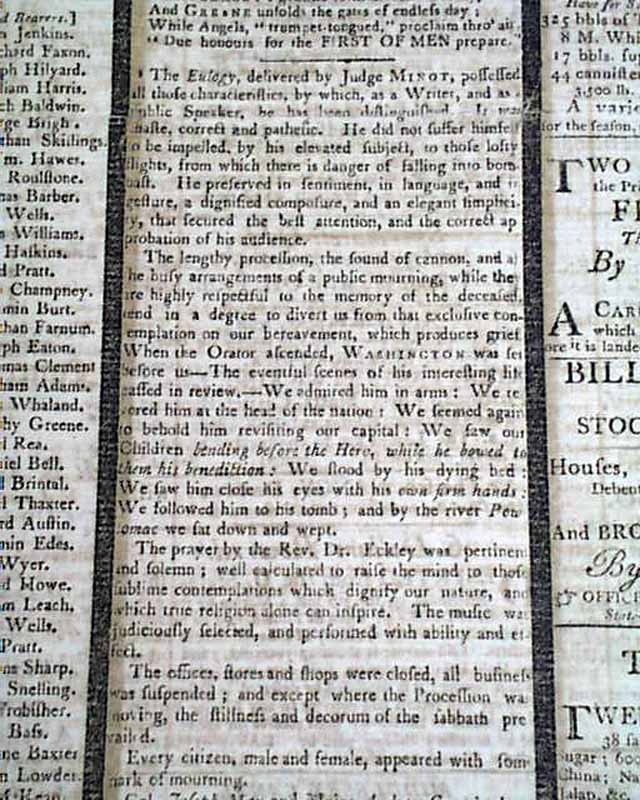 d Bearers.]
n Jenkins.
chard Faxon.
ph Hilyard.
liam Harris.
ch Baldwin.
rge Brigh.
than Skillings.
m. Hawes.
Roulſtone.
nas Barber.
Wells.
s Williams.
Haſkins.
d Pratt.
Champney.
min Burt.
than Farnum.
ph Eaton.
omas Clement
ham Adams.
Whaland.
hy Greene.
l Rea.
niel Bell.
l Brintal.
l Thaxter.
rd Auſtin.
min Edes.
Wyer.
d Howe.
m Leach.
Wells.
Pratt.
ns Sharp.
Snelling.
Frobiſher.
Baſs.
ne Baxter
n Lowder.
And GREENE unfolds the gates of endleſs day;
While Angels, "trumpet-tongued," proclaim thro' air,
"Due honours for the FIRST OF MEN prepare."
The Eulogy, delivered by Judge MINOT, poſſeſſed
all thoſe characteriſtics, by which, as a Writer, and as a
public Speaker, he has been diſtinguiſhed. It was
haſte, correct and pathetic. He did not ſuffer himſelf
to be impelled, by his elevated ſubject, to thoſe lofty
flights, from which there is danger of falling into bom-
baſt. He preſerved in ſentiment, in language, and in
geſture, a dignified compoſure, and an elegant ſimplici-
ty, that ſecured the beſt attention, and the correct ap
probation of his audience.
The lengthy proceſſion, the ſound of cannon, and al
he buſy arrangements of a public mourning, while they
are highly reſpectful to the memory of the deceaſed,
tend in a degree to divert us from that excluſive con-
templation on our bereavement, which produces grief.
When the Orator aſcended, WASHINGTON was ſet
before us—The eventful ſcenes of his intereſting life
paſſed in review.—We admired him in arms: We re
vered him at the head of the nation: We ſeemed again
to behold him reviſiting our capital: We ſaw our
Children bending before the Hero, while he bowed to
them his benediction: We ſtood by his dying bed:
We ſaw him cloſe his eyes with his own firm hands:
We followed him to his tomb; and by the river Pow
omac we ſat down and wept.
The prayer by the Rev. Dr. Eckley was pertinent
and ſolemn; well calculated to raiſe the mind to thoſe
ſublime contemplations which dignify our nature, and
which true religion alone can inſpire. The muſic was
judiciouſly ſelected, and performed with ability and ef-
fect.
The offices, ſtores and ſhops were cloſed, all buſineſs
was ſuſpended; and except where the Proceſſion was
moving, the ſtillneſs and decorum of the ſabbath pre
vailed.
Every citizen, male and female, appeared with ſom
mark of mourning.
Have for S
325 bbls of
8 M. Whi
17 bbls. ſup
44 canniſter
3,500 lb.
A vari
for the ſeaſon.
TWO
the Pr
FI
Th
By
A CAR
which
ore it is lande
BILL
STOC
Houſes,
Debent
And BRO
By
OFFIC
State
T
TWE
38 ſa
Sugar; 600
China; Na
Jalap, &c.